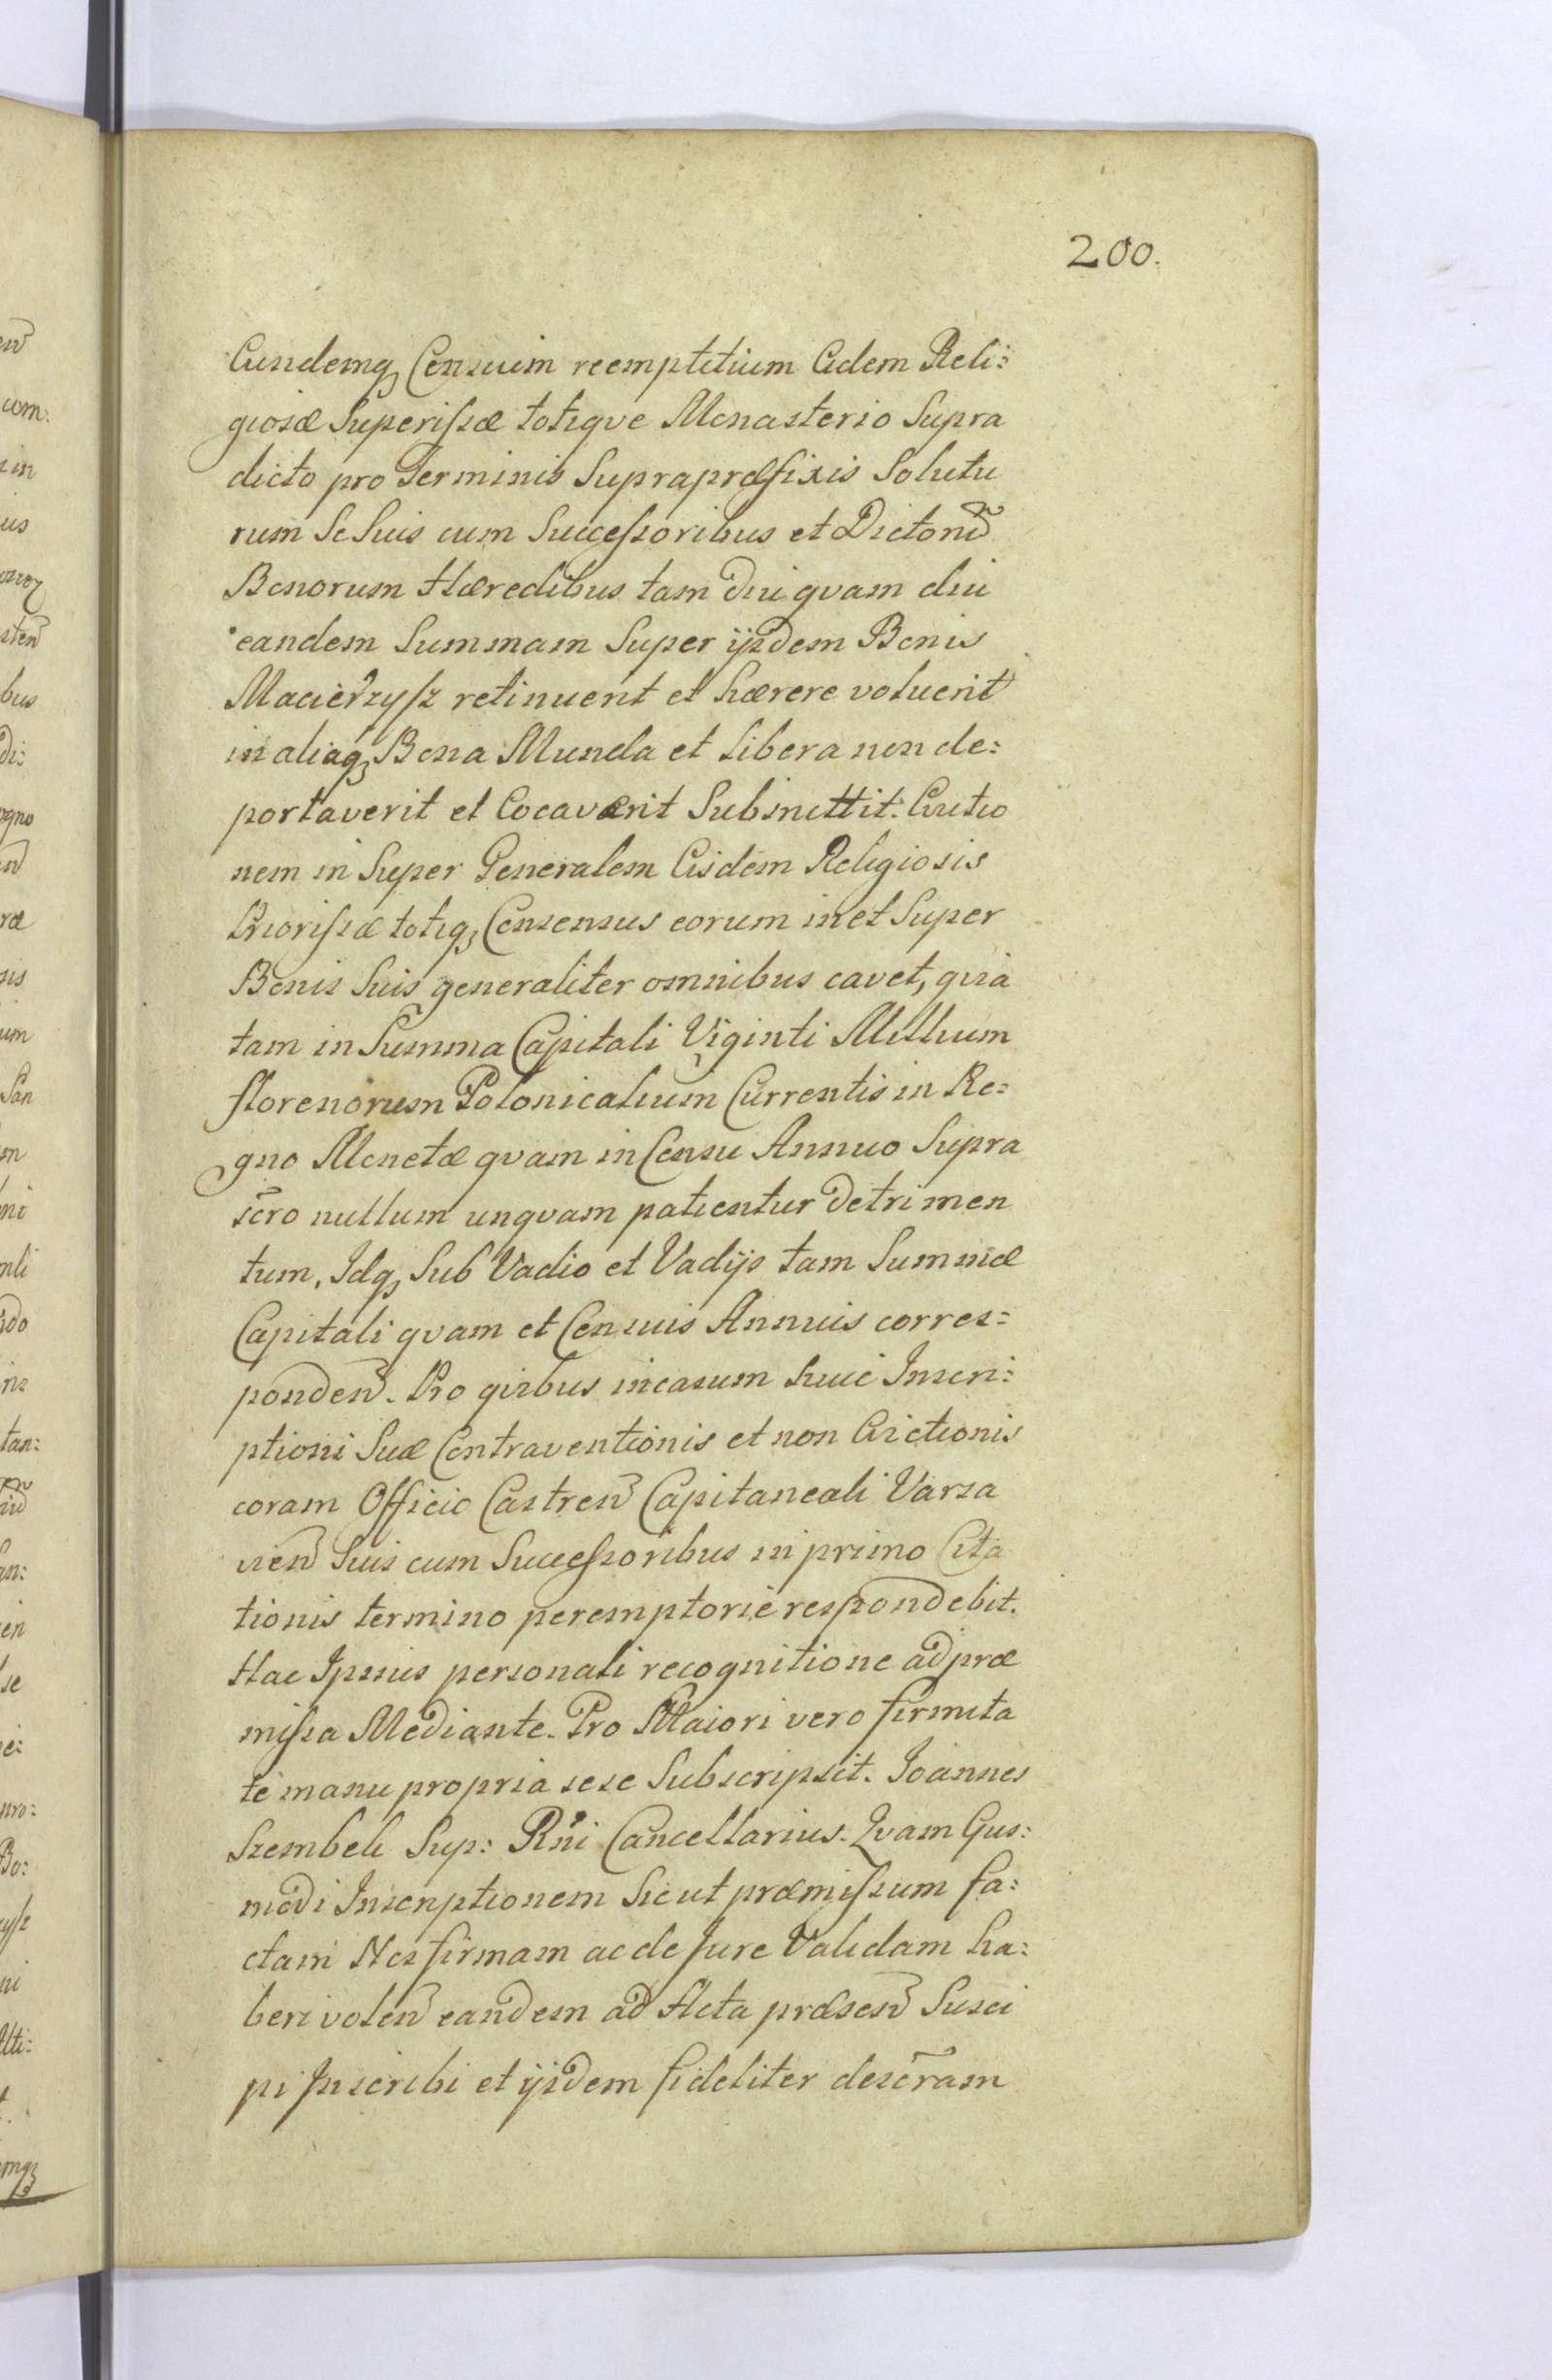 200.
Eundemq₃ Censum reemptitium Eidem Reli:
giosæ Superiſsæ totiqve Monasterio Supra
dicto pro Terminis Suprapræfixis Solutu
rum Se Suis cum Succeſsoribus et Dictorũ
Bonorum Hæredibus tam Diu qvam diu
eandem Summam Super ijsdem Bonis
Macierzyſz retinuerit et hærere voluerit
in aliaq₃ Bona Munda et Libera non de:
portaverit et Locaverit Submittit. Evictio
nem in Super Generalem Eisdem Religiosis
Prioriſsæ totiq₃ Consensus eorum in et Super
Bonis Suis generaliter omnibus cavet, qvia
tam in Summa Capitali Viginti Millium
florenorum Polonicalium Currentis in Re:
gno Monetæ qvam in Censu Annuo Supra
scro nullum unqvam patientur Detrimen
tum, Idq₃ Sub Vadio et Vadijs tam Summæ
Capitali qvam et Censuis Annuis corres:
ponden̄. Pro qvibus incasum huic Inscri:
ptioni Suæ Contraventionis et non Evictionis
coram Officio Castren̄ Capitaneali Varsa
vien̄ Suis cum Succeſsoribus in primo Cita
tionis termino peremptorie respondebit.
Hac Ipsius personali recognitione ad præ
miſsa Mediante. Pro Maiori vero firmita
te manu propria sese Subscripsit. Joannes
Szembek Sup: Rñi Cancellarius. Qvam Gus:
modi Inscriptionem Sicut præmiſsum fa:
ctam Nos firmam ac de Jure Validam ha:
beri volen̄ eandem ad Acta præsen̄ Susci
pi Inscribi et ijsdem fideliter descr̃am